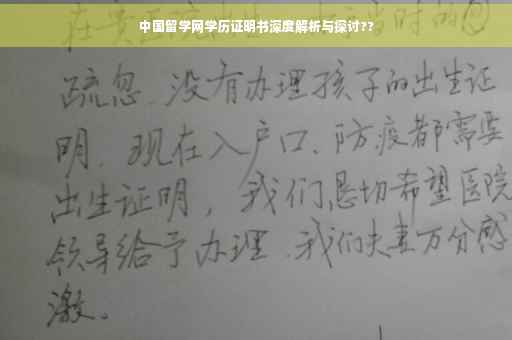 中国留学网学历证明书深度解析与探讨??
疏忽、没有办理孩子的出生证
明、现在入户口、防疫都需要
出生证明，我们恳切希望医院
领导给予办理、我们夫妻万分感
激。